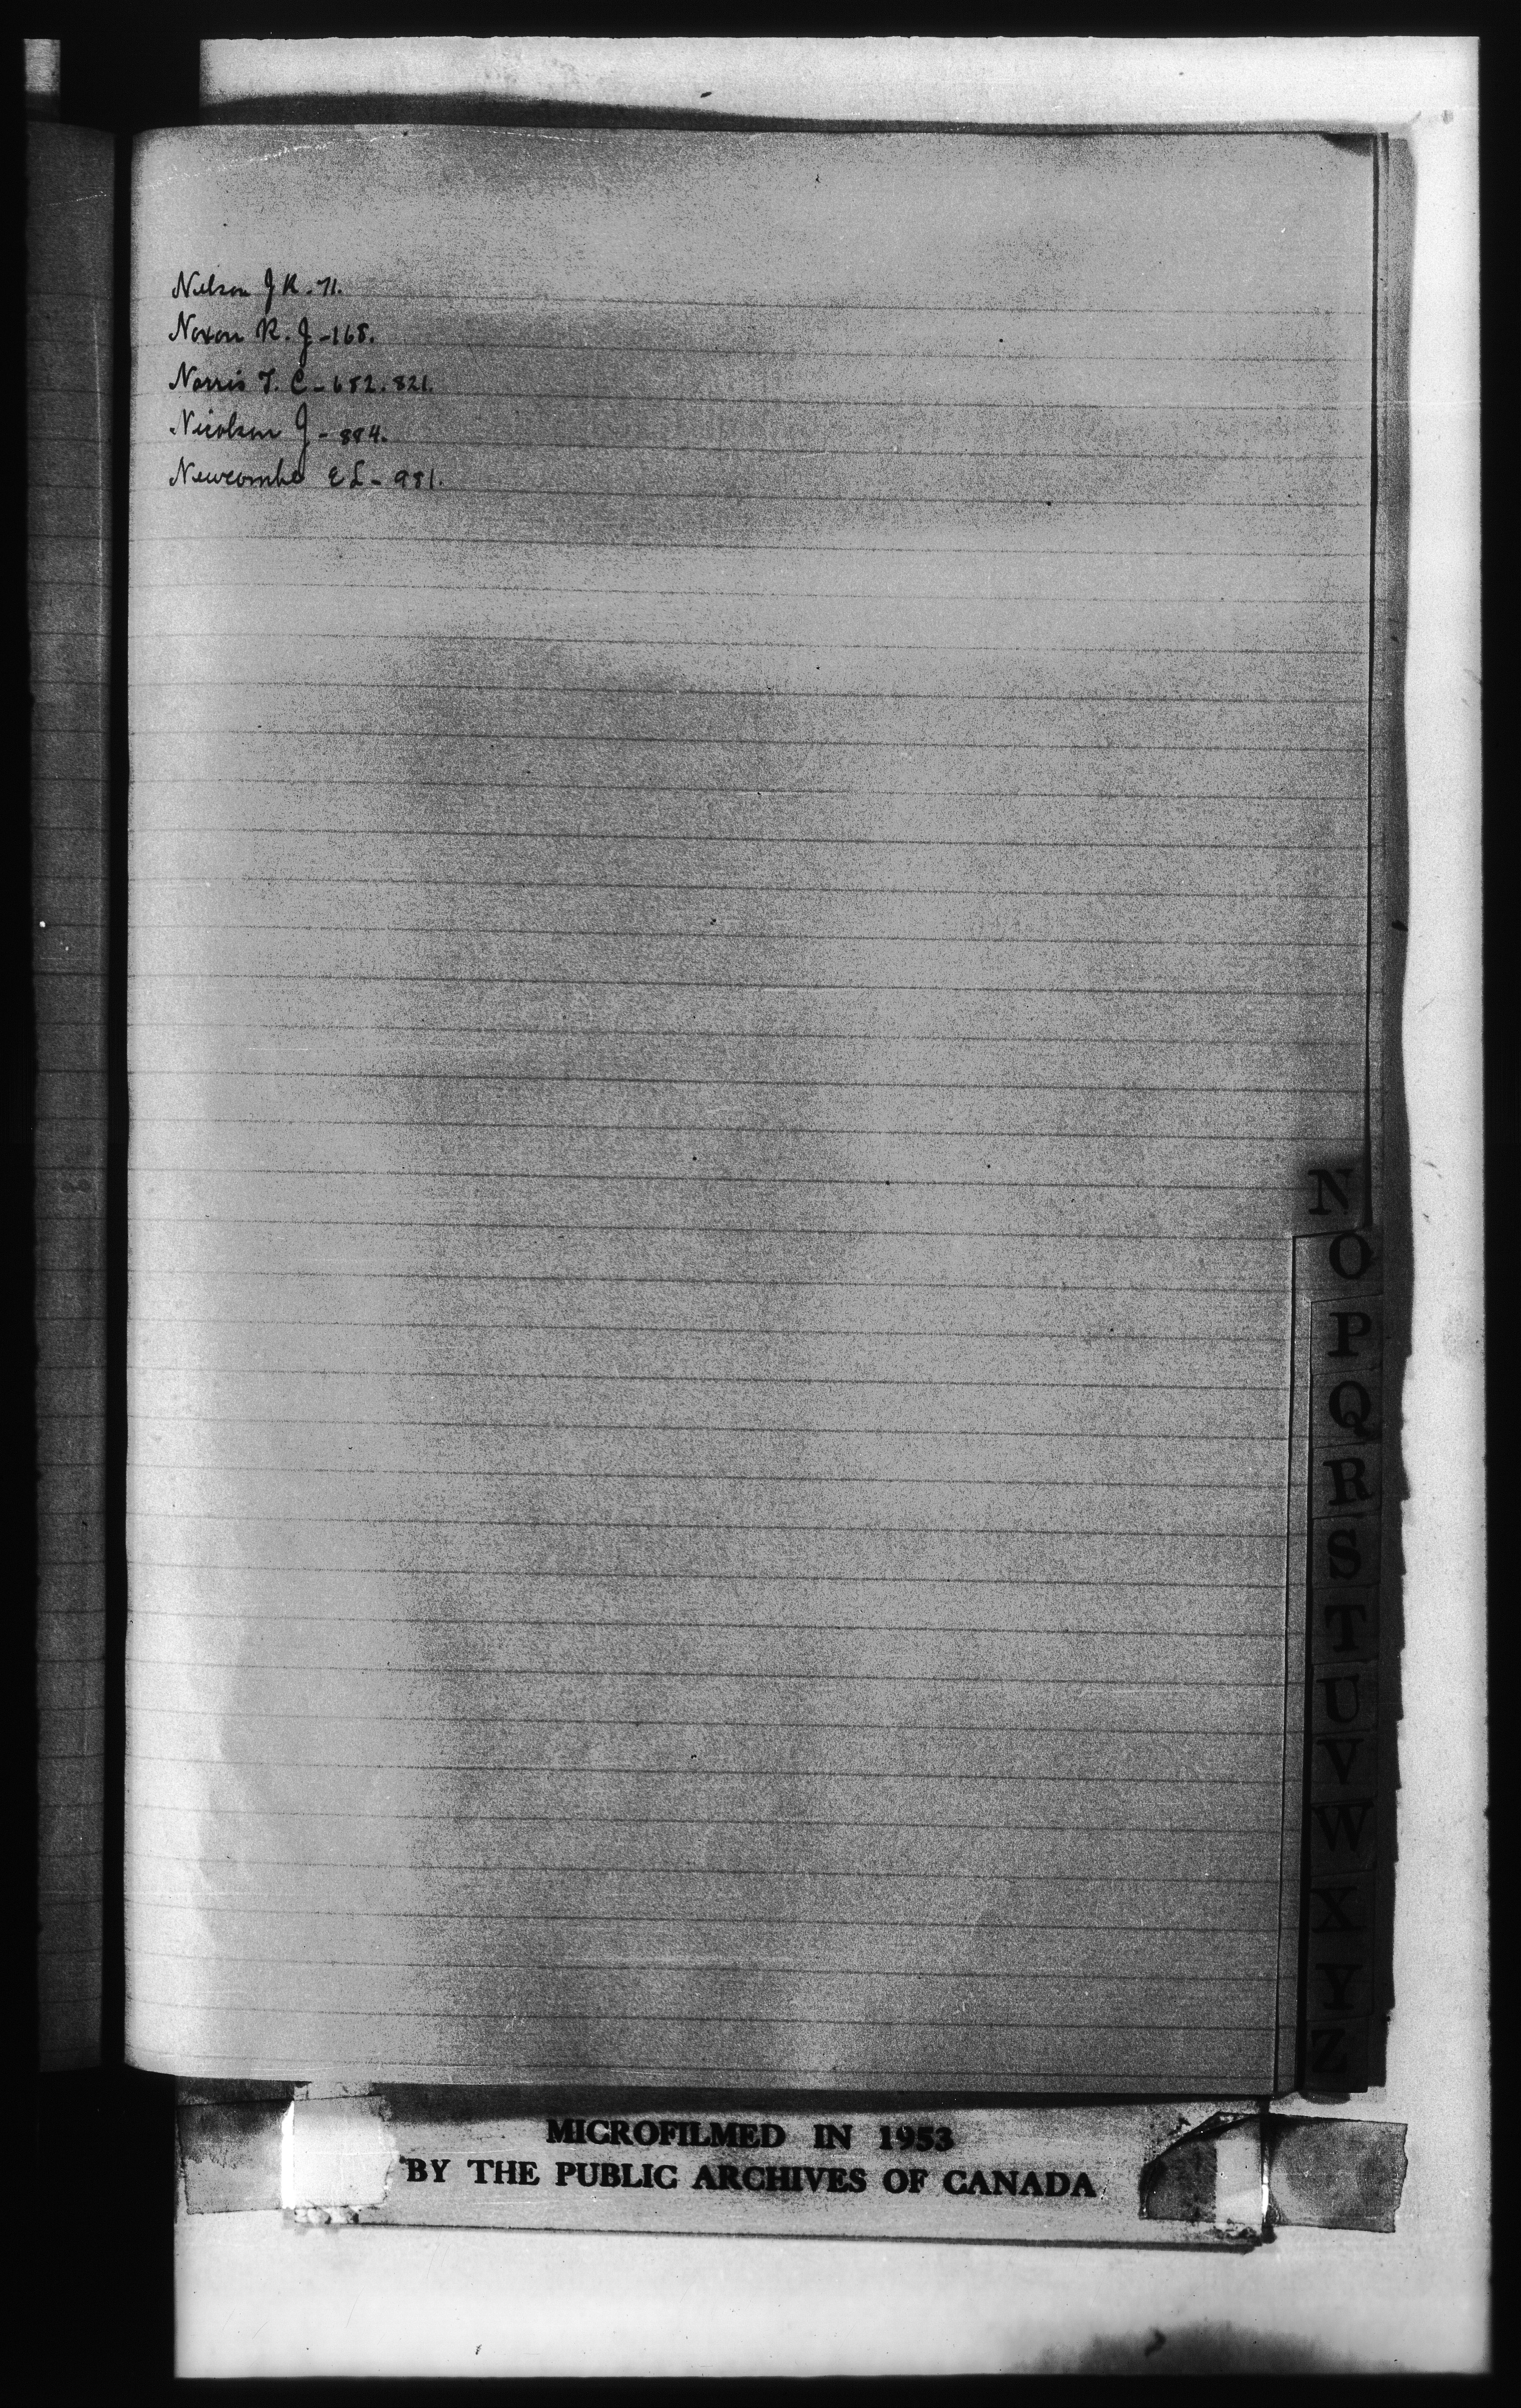 Nelson J R. 71.
Noxon R. J - 168.
Norris T. C - 652. 821.
Nicolson J - 884.
Newcombe E L - 981.
N
O
P
Q
R
S
T
U
V
W
X
Y
Z
MICROFILMED IN 1953
BY THE PUBLIC ARCHIVES OF CANADA